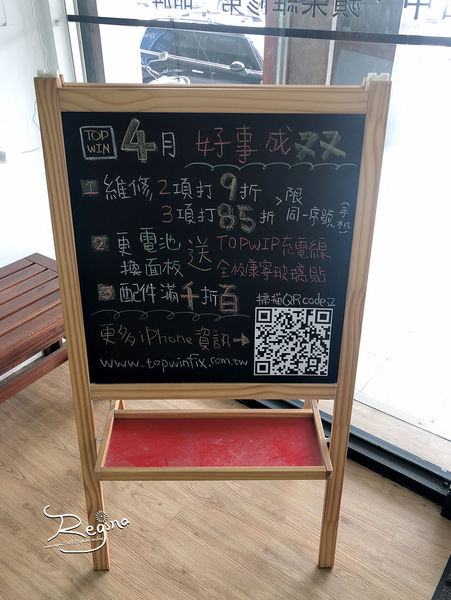 TOP WIN 4月 好事成双
1 維修 2項打9折
3項打85折 > 限同一序號(手機)
2 更換 電池 面板 送 TOPWIP充電線
全板康寧玻璃貼
3 配件滿千折百
掃描QRcode
更多iPhone資訊→
www.topwinfix.com.tw
Regina